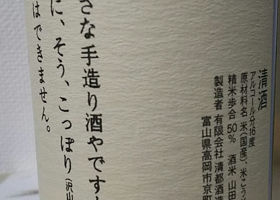 清酒
アルコール分16度
原材料名 米(国産)、米こう
精米歩合50% 酒米 山田
製造者 有限会社 清都酒造
富山県高岡市京町
さな手造り酒やですか
に、そう、こっぽり(沢山
はできません。